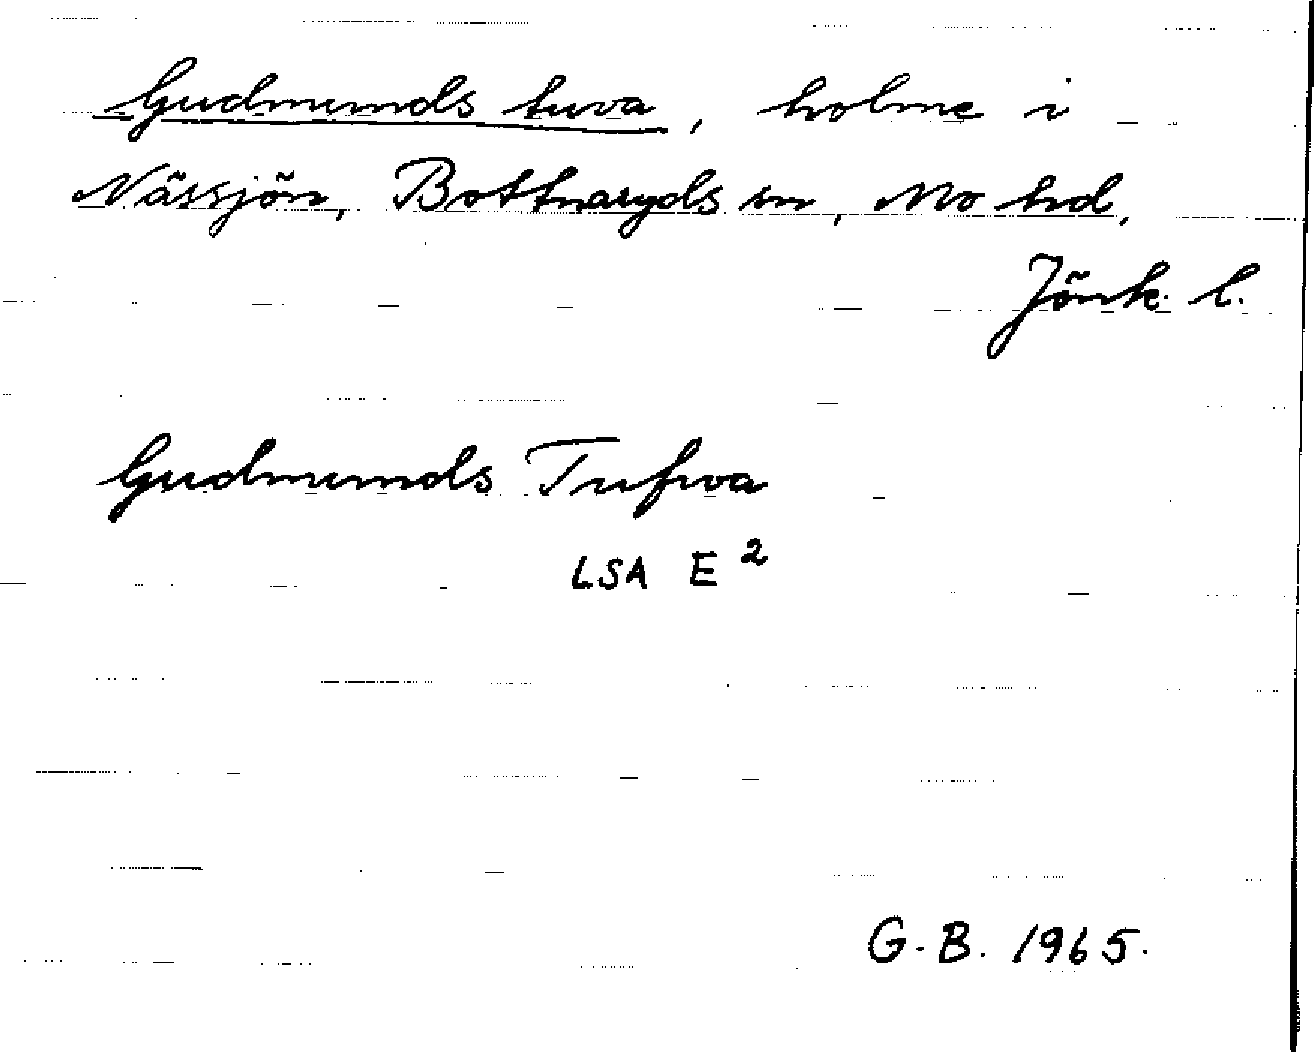 Gudmunds tuva, holme i
Nässjön, Bottnaryds sn, Mo hd,
Jönk. l.
Gudmunds Tufva
LSA E²
G.B. 1965.